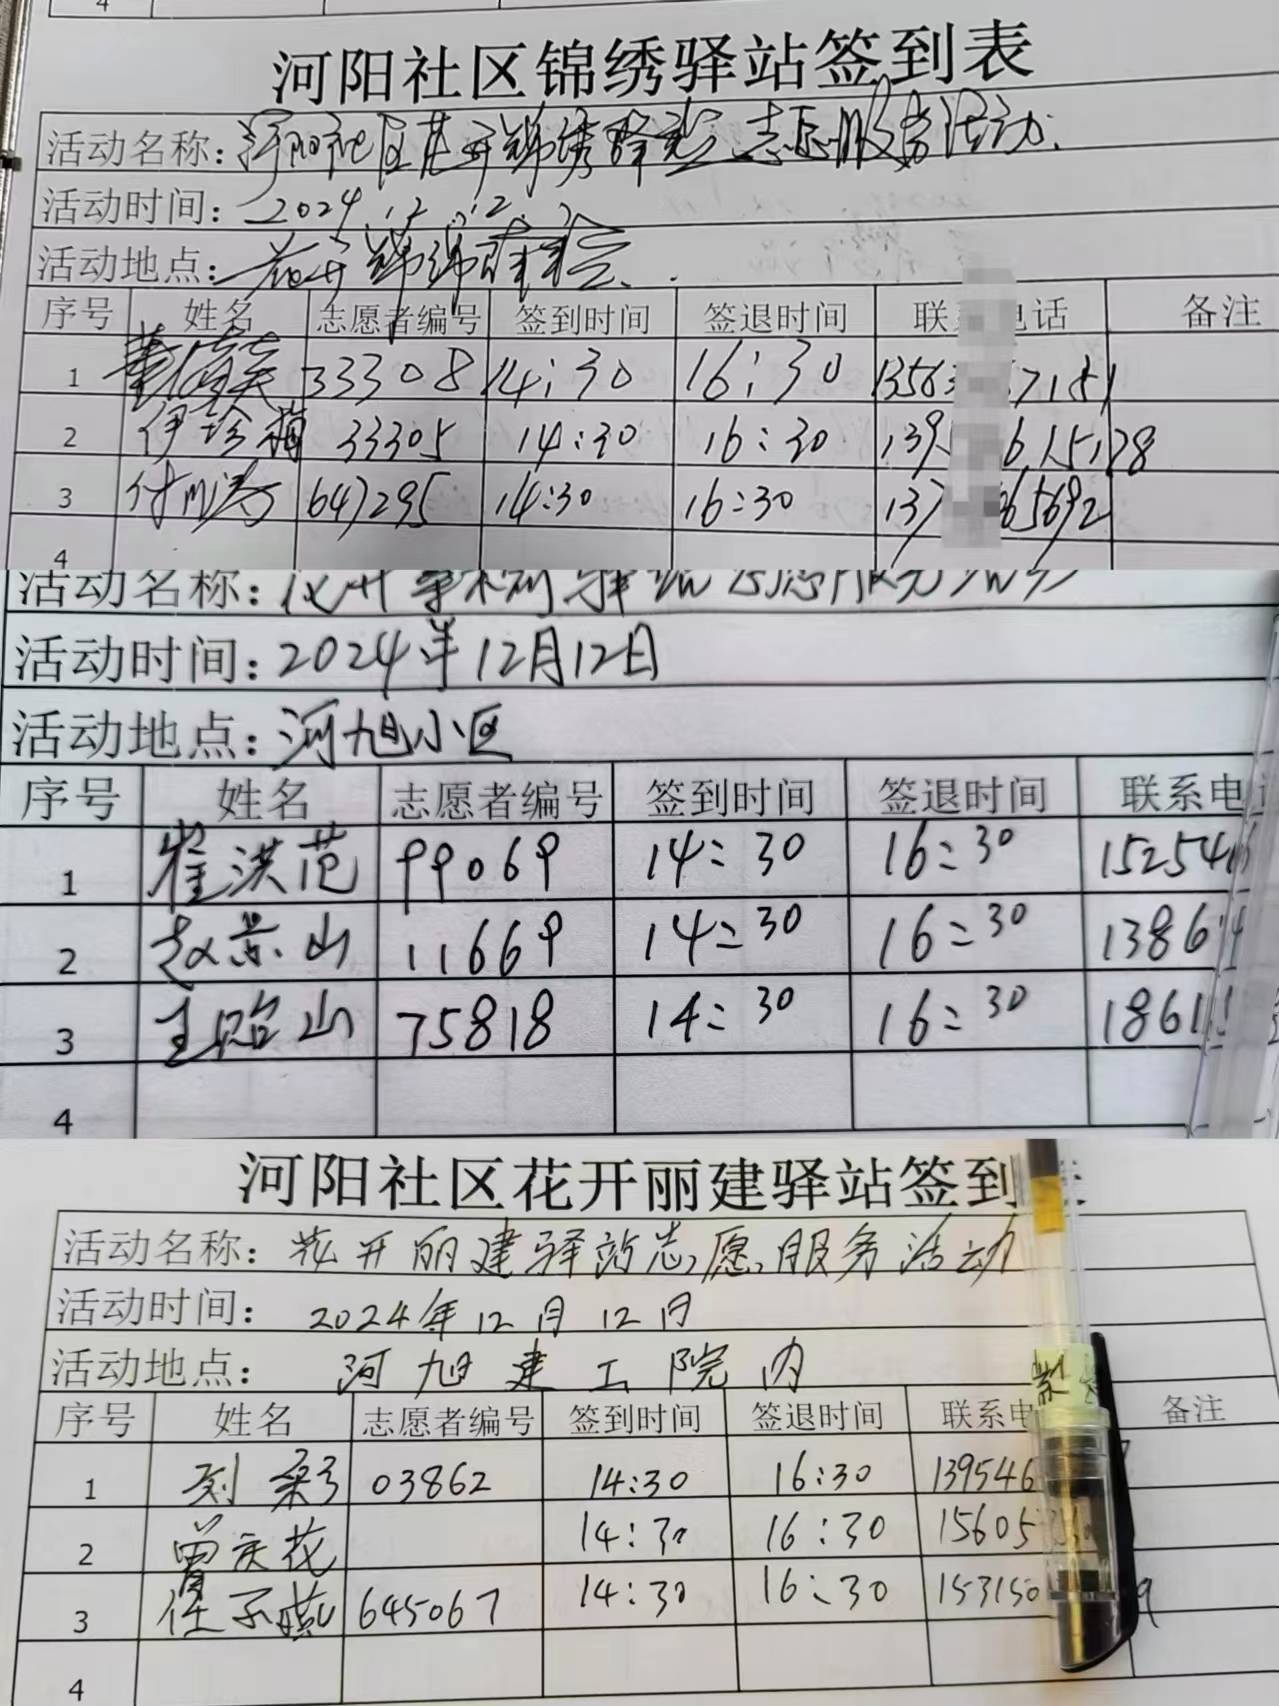 4
河阳社区锦绣驿站签到表
活动名称：河阳社区花开锦绣驿站志愿服务活动.
活动时间：2024.12.12.
活动地点：花开锦绣驿站.
序号 姓名 志愿者编号 签到时间 签退时间 联 电话 备注
1 33308 14:30 16:30 1356 7151
2 伊珍梅 33305 14:30 16:30 139 615128
3 付 647295 14:30 16:30 137 65692
4
活动名称： 驿站志愿服务活动
活动时间：2024年12月12日
活动地点：河旭小区
序号 姓名 志愿者编号 签到时间 签退时间 联系电
1 崔洪范 99069 14:30 16:30 15254
2 赵景山 11669 14:30 16:30 1386
3 王贻山 75818 14:30 16:30 1861
4
河阳社区花开丽建驿站签到
活动名称：花开丽建驿站志愿服务活动
活动时间： 2024年12月12日
活动地点： 河旭建工院内
序号 姓名 志愿者编号 签到时间 签退时间 联系电 备注
1 刘 03862 14:30 16:30 139546
2 曹庆花 14:30 16:30 15605
3 任子燕 645067 14:30 16:30 153150 9
4